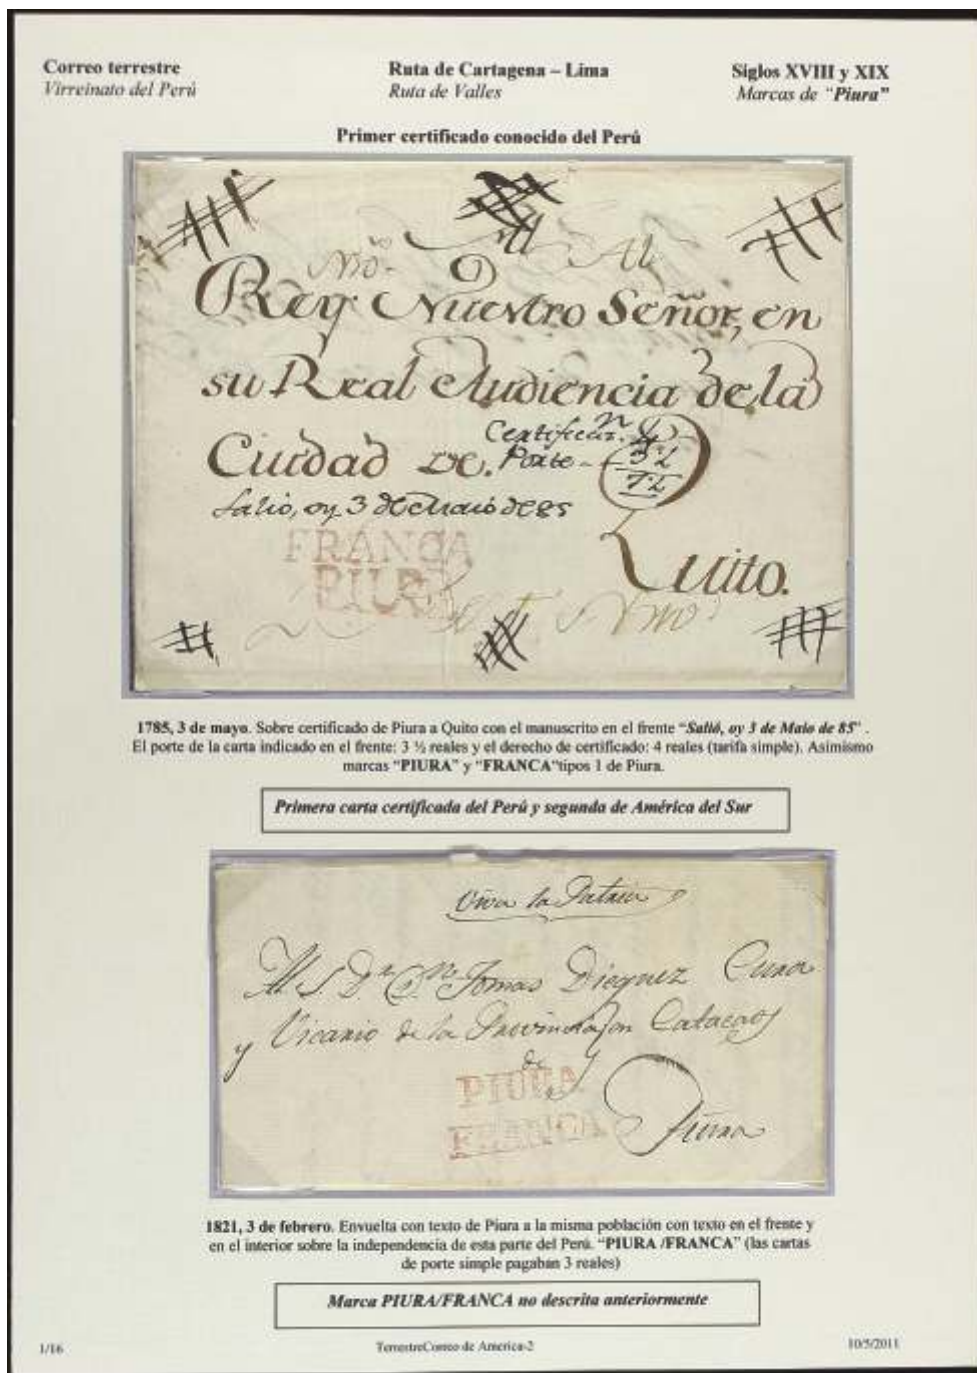 Correo terrestre
Virreinato del Perú
Ruta de Cartagena – Lima
Ruta de Valles
Siglos XVIII y XIX
Marcas de "Piura"
Primer certificado conocido del Perú
Al
Rey Nuestro Señor, en
su Real Audiencia de la
Ciudad de.
Porte
Salio, oy 3 de Maio de 85
FRANCA
PIURA
Quito.
1785, 3 de mayo. Sobre certificado de Piura a Quito con el manuscrito en el frente "Salió, oy 3 de Maio de 85" .
El porte de la carta indicado en el frente: 3 ½ reales y el derecho de certificado: 4 reales (tarifa simple). Asimismo
marcas "PIURA" y "FRANCA"tipos 1 de Piura.
Primera carta certificada del Perú y segunda de América del Sur
Viva la Patria
Al S. Dr. Dn. Tomas Dieguez Cura
y Vicario de la Provincia en Catacaos
de
PIURA
FRANCA
Piura
1821, 3 de febrero. Envuelta con texto de Piura a la misma población con texto en el frente y
en el interior sobre la independencia de esta parte del Perú. "PIURA /FRANCA" (las cartas
de porte simple pagaban 3 reales)
Marca PIURA/FRANCA no descrita anteriormente
1/16
TerrestreCorreo de America-2
10/5/2011